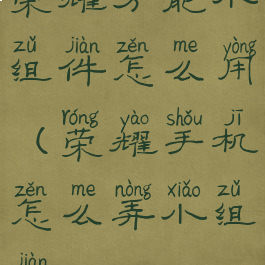 荣耀
zǔ jiàn zěn me yòng
组件怎么用
róng yào shǒu jī
(荣耀手机
zěn me nòng xiǎo zǔ
怎么弄小组
jiàn